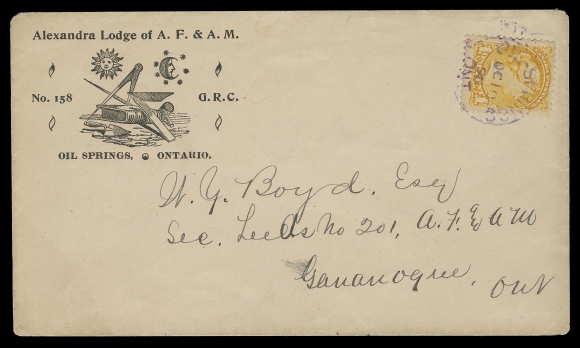 Alexandra Lodge of A. F. & A. M.
No. 158 G. R. C.
OIL SPRINGS, ONTARIO.
OIL-SPRINGS
DE 10
ONT
W. Y. Boyd, Esq
Sec. Leeds No 201, A. F. & A M
Gananoque,
Ont